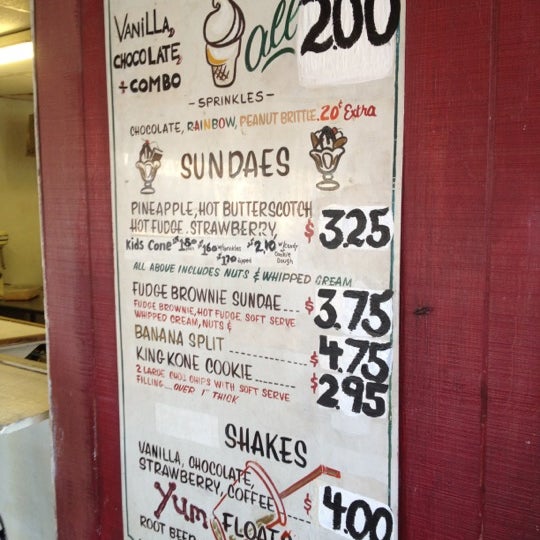 VANILLA,
CHOCOLATE,
+ COMBO
all 2.00
- SPRINKLES -
CHOCOLATE, RAINBOW, PEANUT BRITTLE. 20¢ Extra
SUNDAES
PINEAPPLE, HOT BUTTERSCOTCH
HOT FUDGE, STRAWBERRY, $3.25
Kids Cone $1.50 $1.60 w/sprinkles $2.10 w/candy or Cookie Dough
$1.70 dipped
ALL ABOVE INCLUDES NUTS & WHIPPED CREAM
FUDGE BROWNIE SUNDAE ---- $3.75
FUDGE BROWNIE, HOT FUDGE, SOFT SERVE
WHIPPED CREAM, NUTS &
BANANA SPLIT ---------- $4.75
KING KONE COOKIE -------- $2.95
2 LARGE CHOC. CHIPS WITH SOFT SERVE
FILLING... OVER 1" THICK
SHAKES
VANILLA, CHOCOLATE,
STRAWBERRY, COFFEE ---- $4.00
Yum FLOAT
ROOT BEER